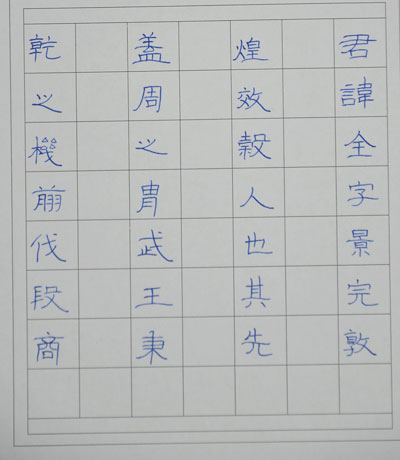 君諱全字景完敦
煌效穀人也其先
盖周之胄武王秉
乾之機翦伐段商